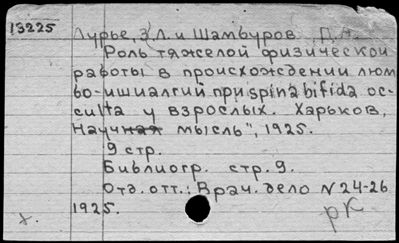 13225
Лурье, З.Л. и Шамбуров Д.А.
Роль тяжелой физической
работы в происхождении люм
бо-ишиалгий при spina bifida oc-
culta у взрослых. Харьков,
"Научная мысль", 1925.
9 стр.
Библиогр. стр. 9.
Отд. отт.: Врач. дело N 24-26
1925.
х.
рК